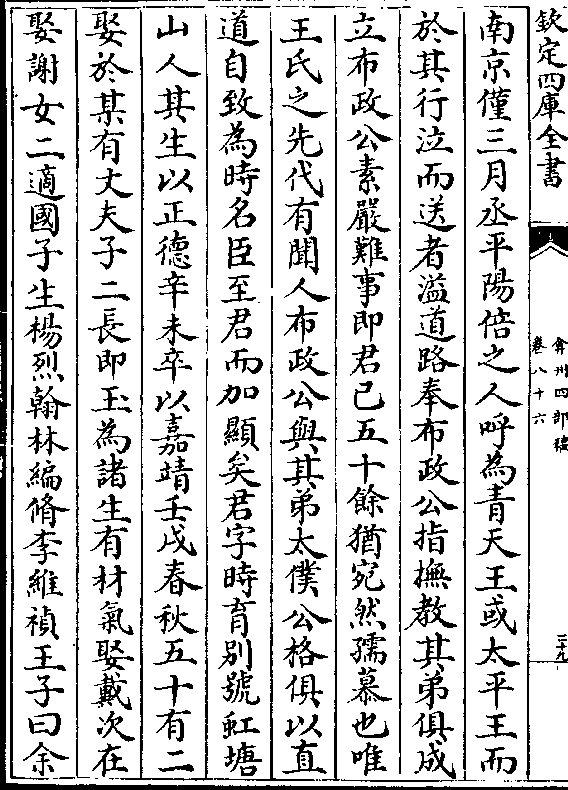 欽定四庫全書
弇州四部稿
卷八十六
三十九
南京僅三月丞平陽倍之人呼為青天王或太平王而
於其行泣而送者溢道路奉布政公指撫教其弟俱成
立布政公素嚴難事即君已五十餘猶宛然孺慕也唯
王氏之先代有聞人布政公與其弟太僕公格俱以直
道自致為時名臣至君而加顯矣君字時育别號虹塘
山人其生以正德辛未卒以嘉靖壬戌春秋五十有二
娶於某有丈夫子二長即玉為諸生有材氣娶戴次在
娶謝女二適國子生楊烈翰林編脩李維禎王子曰余